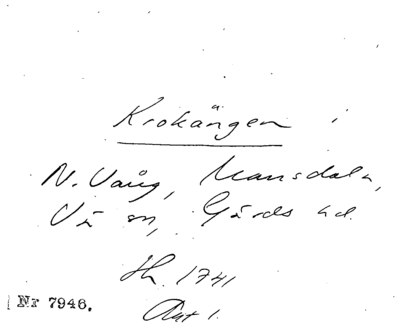 Krokängen i
N. Vång, Mansdala,
Vä sn, Gärds hd.
Hh. 1741
Akt 1.
Nr 7946.